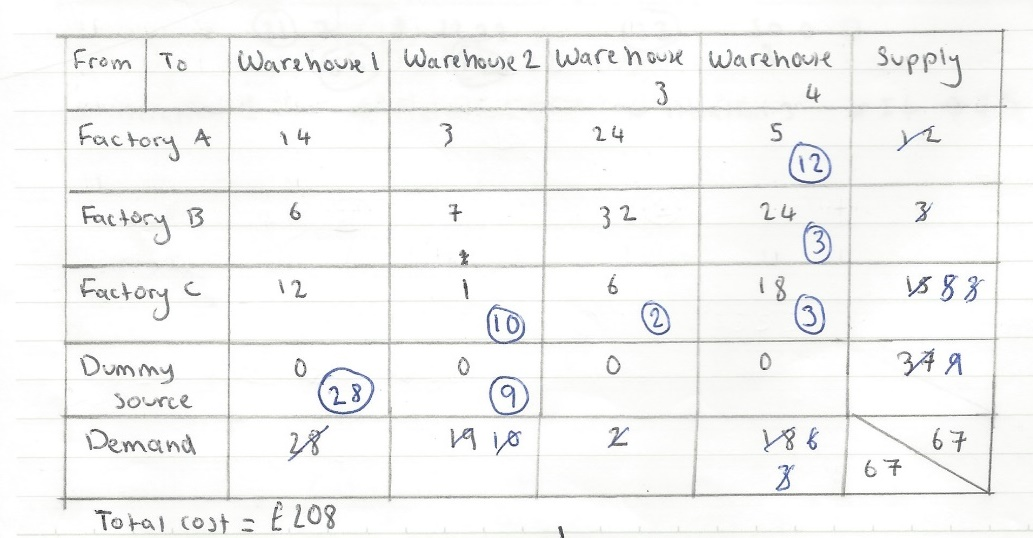 From To Warehouse 1 Warehouse 2 Warehouse Warehouse Supply
3 4
Factory A 14 3 24 5 12
12
Factory B 6 7 32 24 3
3
Factory C 12 1 6 18 15 5 3
10 2 3
Dummy 0 0 0 0 37 9
source 28 9
Demand 28 19 10 2 18 6 67
3 67
Total cost = £208